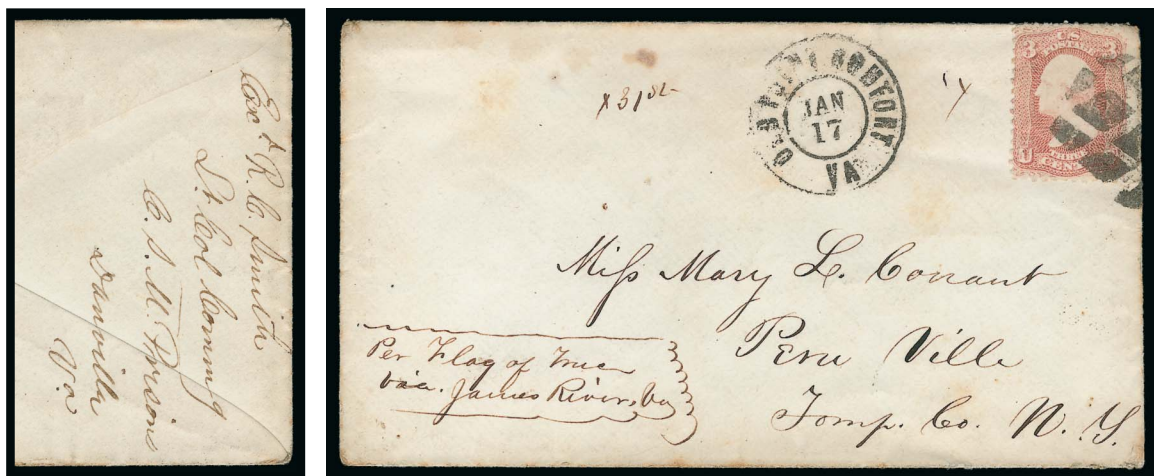 Exd R. C. Smith
Lt. Col Comming
C. S. M. Prisons
Danville
Va
x 31st
OLD POINT COMFORT
JAN
17
VA
U.S.
POSTAGE
3 3
U
CENTS
Miss Mary L. Conant
Peru Ville
Tomp. Co. N. Y.
Per Flag of Truce
via. James River, Va